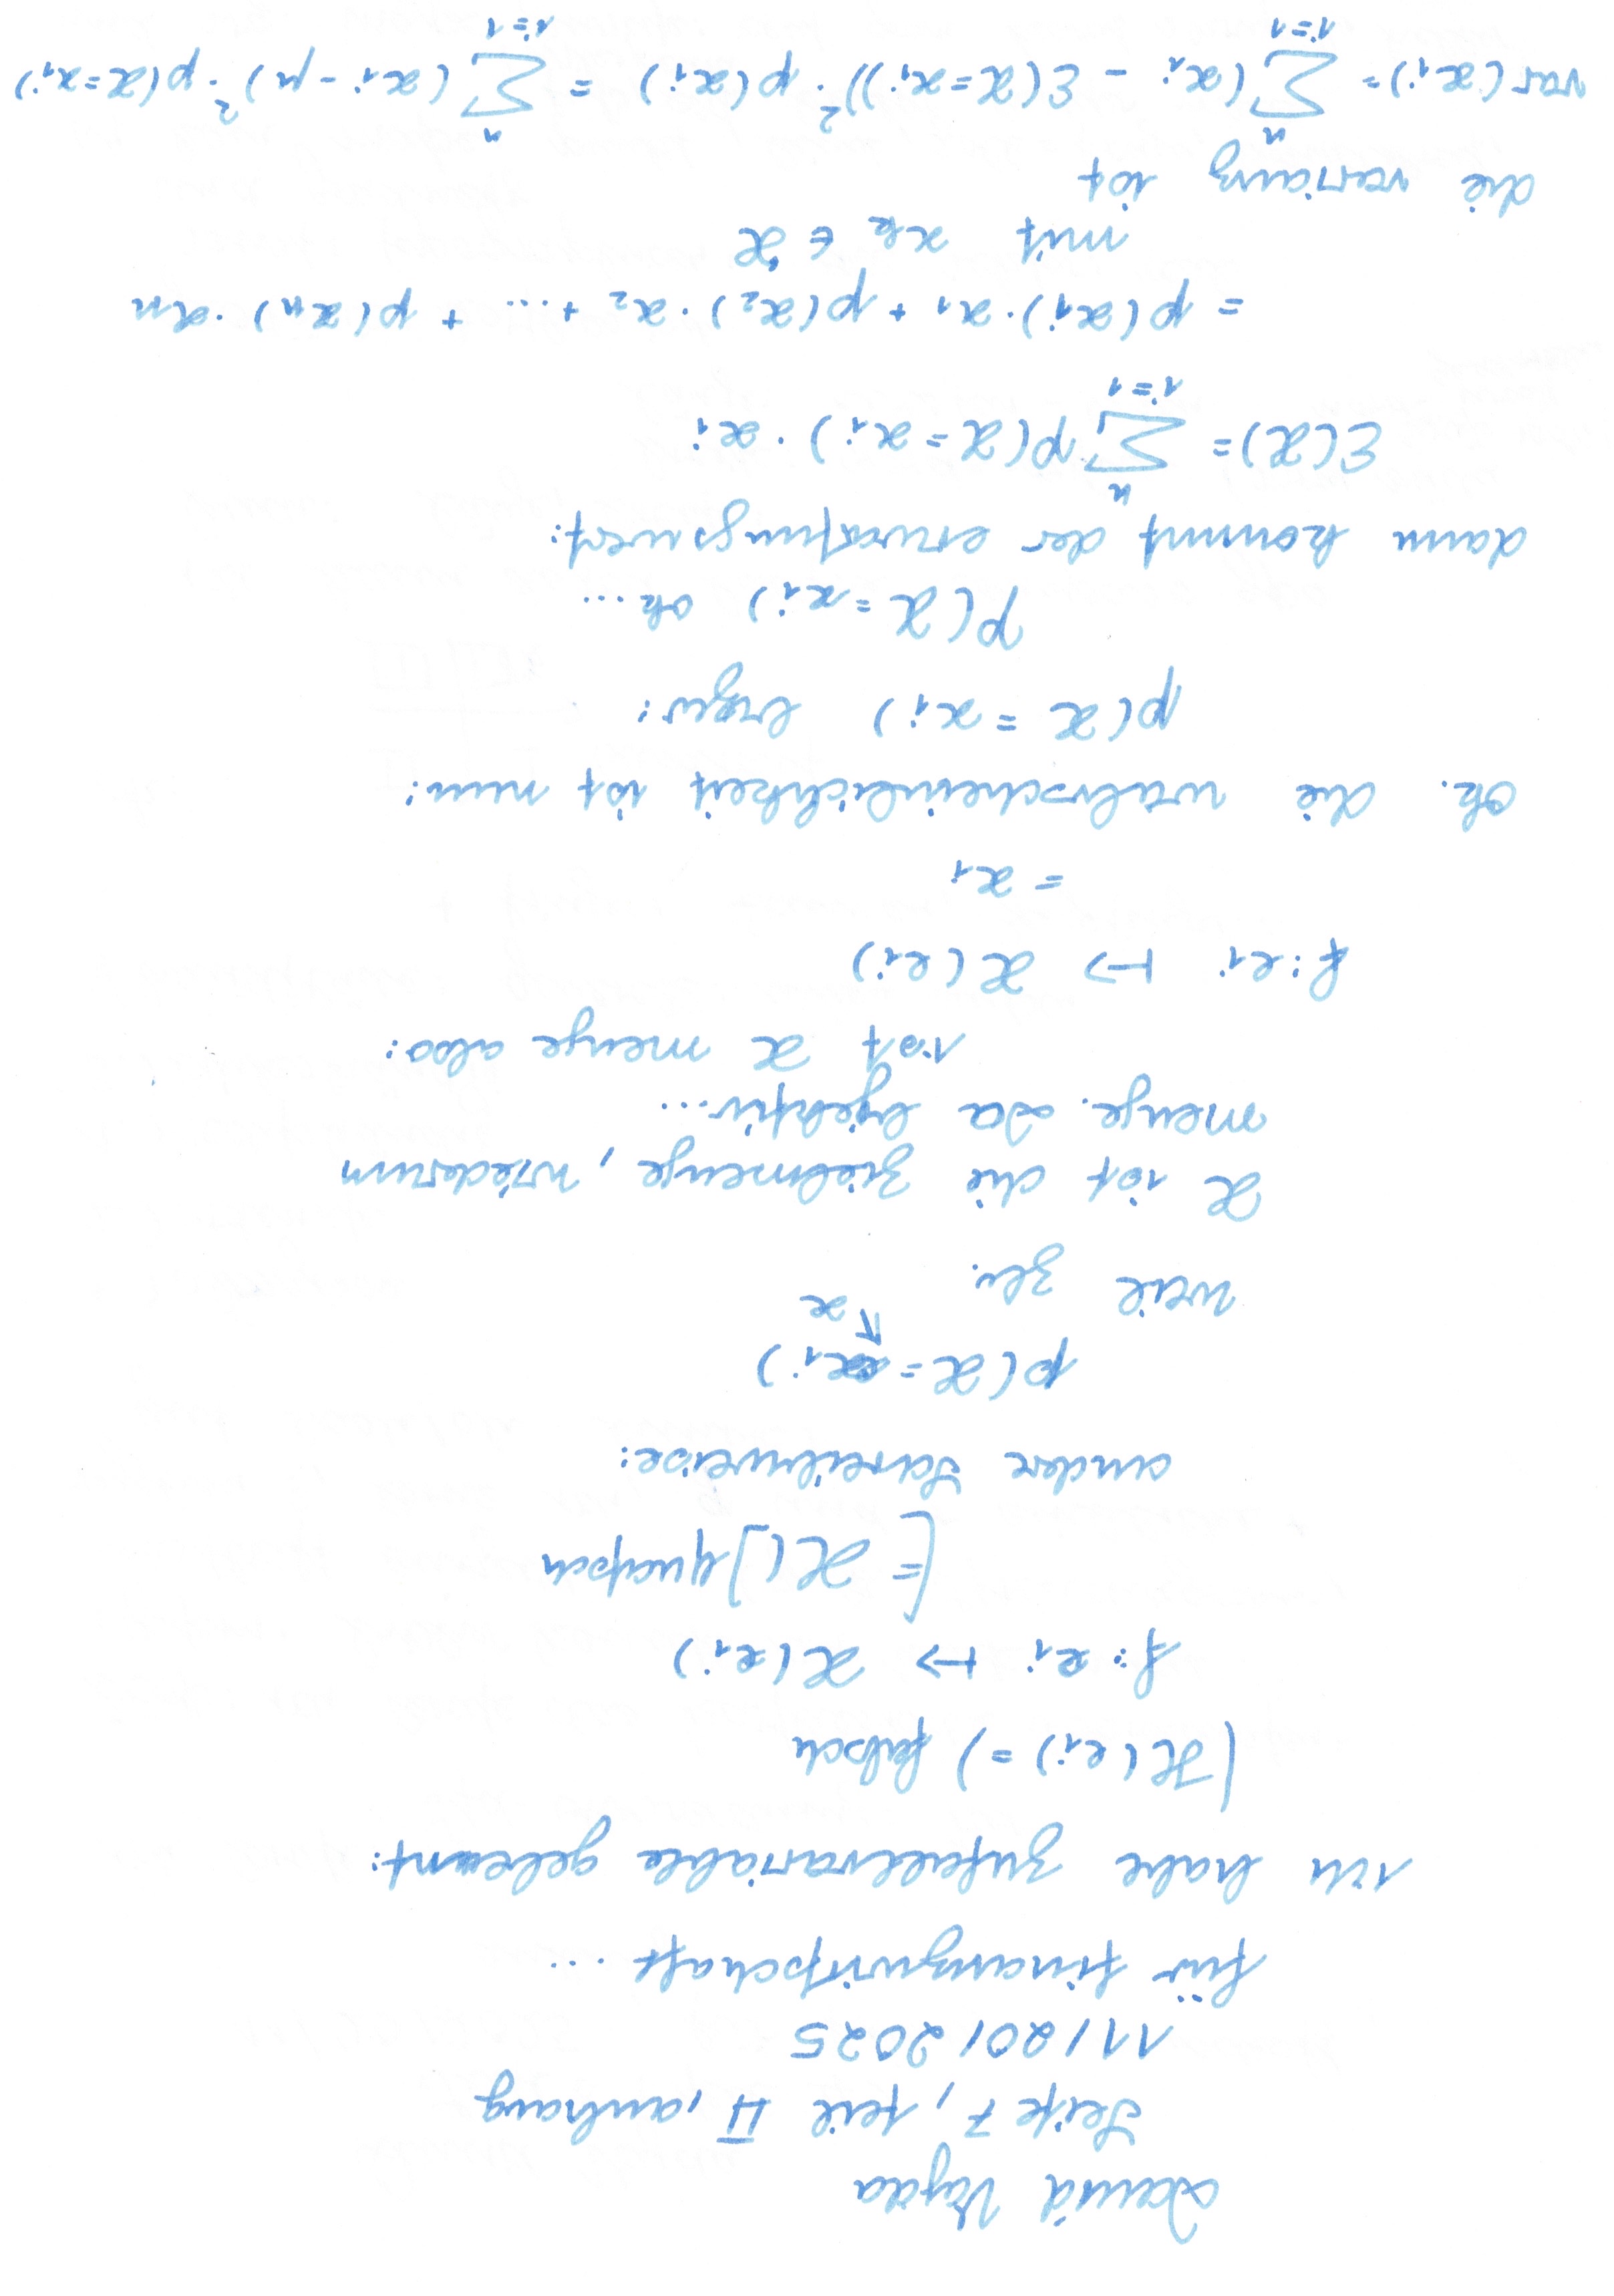 David Vajda
Seite 7, teil II, anhang
11/20/2025
für finanzwirtschaft ...
ich habe zufallvariable gelernt:
(X(ei) =) falsch
f: ei ↦ X(ei)
[= X(] quatsch
andere Schreibweise:
p(X = xi)
x
weil zb.
X ist die zielmenge, wiederum
menge. Da bijektiv...
ist X menge also:
f: ei ↦ X(ei)
= xi
ok. die wahrscheinlichkeit ist nun:
p(X = xi) bzw:
P(X = xi) ok ...
dann kommt der erwartungswert:
E(X) = ∑ⁿᵢ₌₁ p(X = xi) · xi
= p(x1) · x1 + p(x2) · x2 + ... + p(xn) · xn
mit xk ∈ X
die varianz ist
var(xi) = ∑ⁿᵢ₌₁ (xi - E(X = xi))² · p(xi) = ∑ⁿᵢ₌₁ (xi - μ)² · p(X = xi)